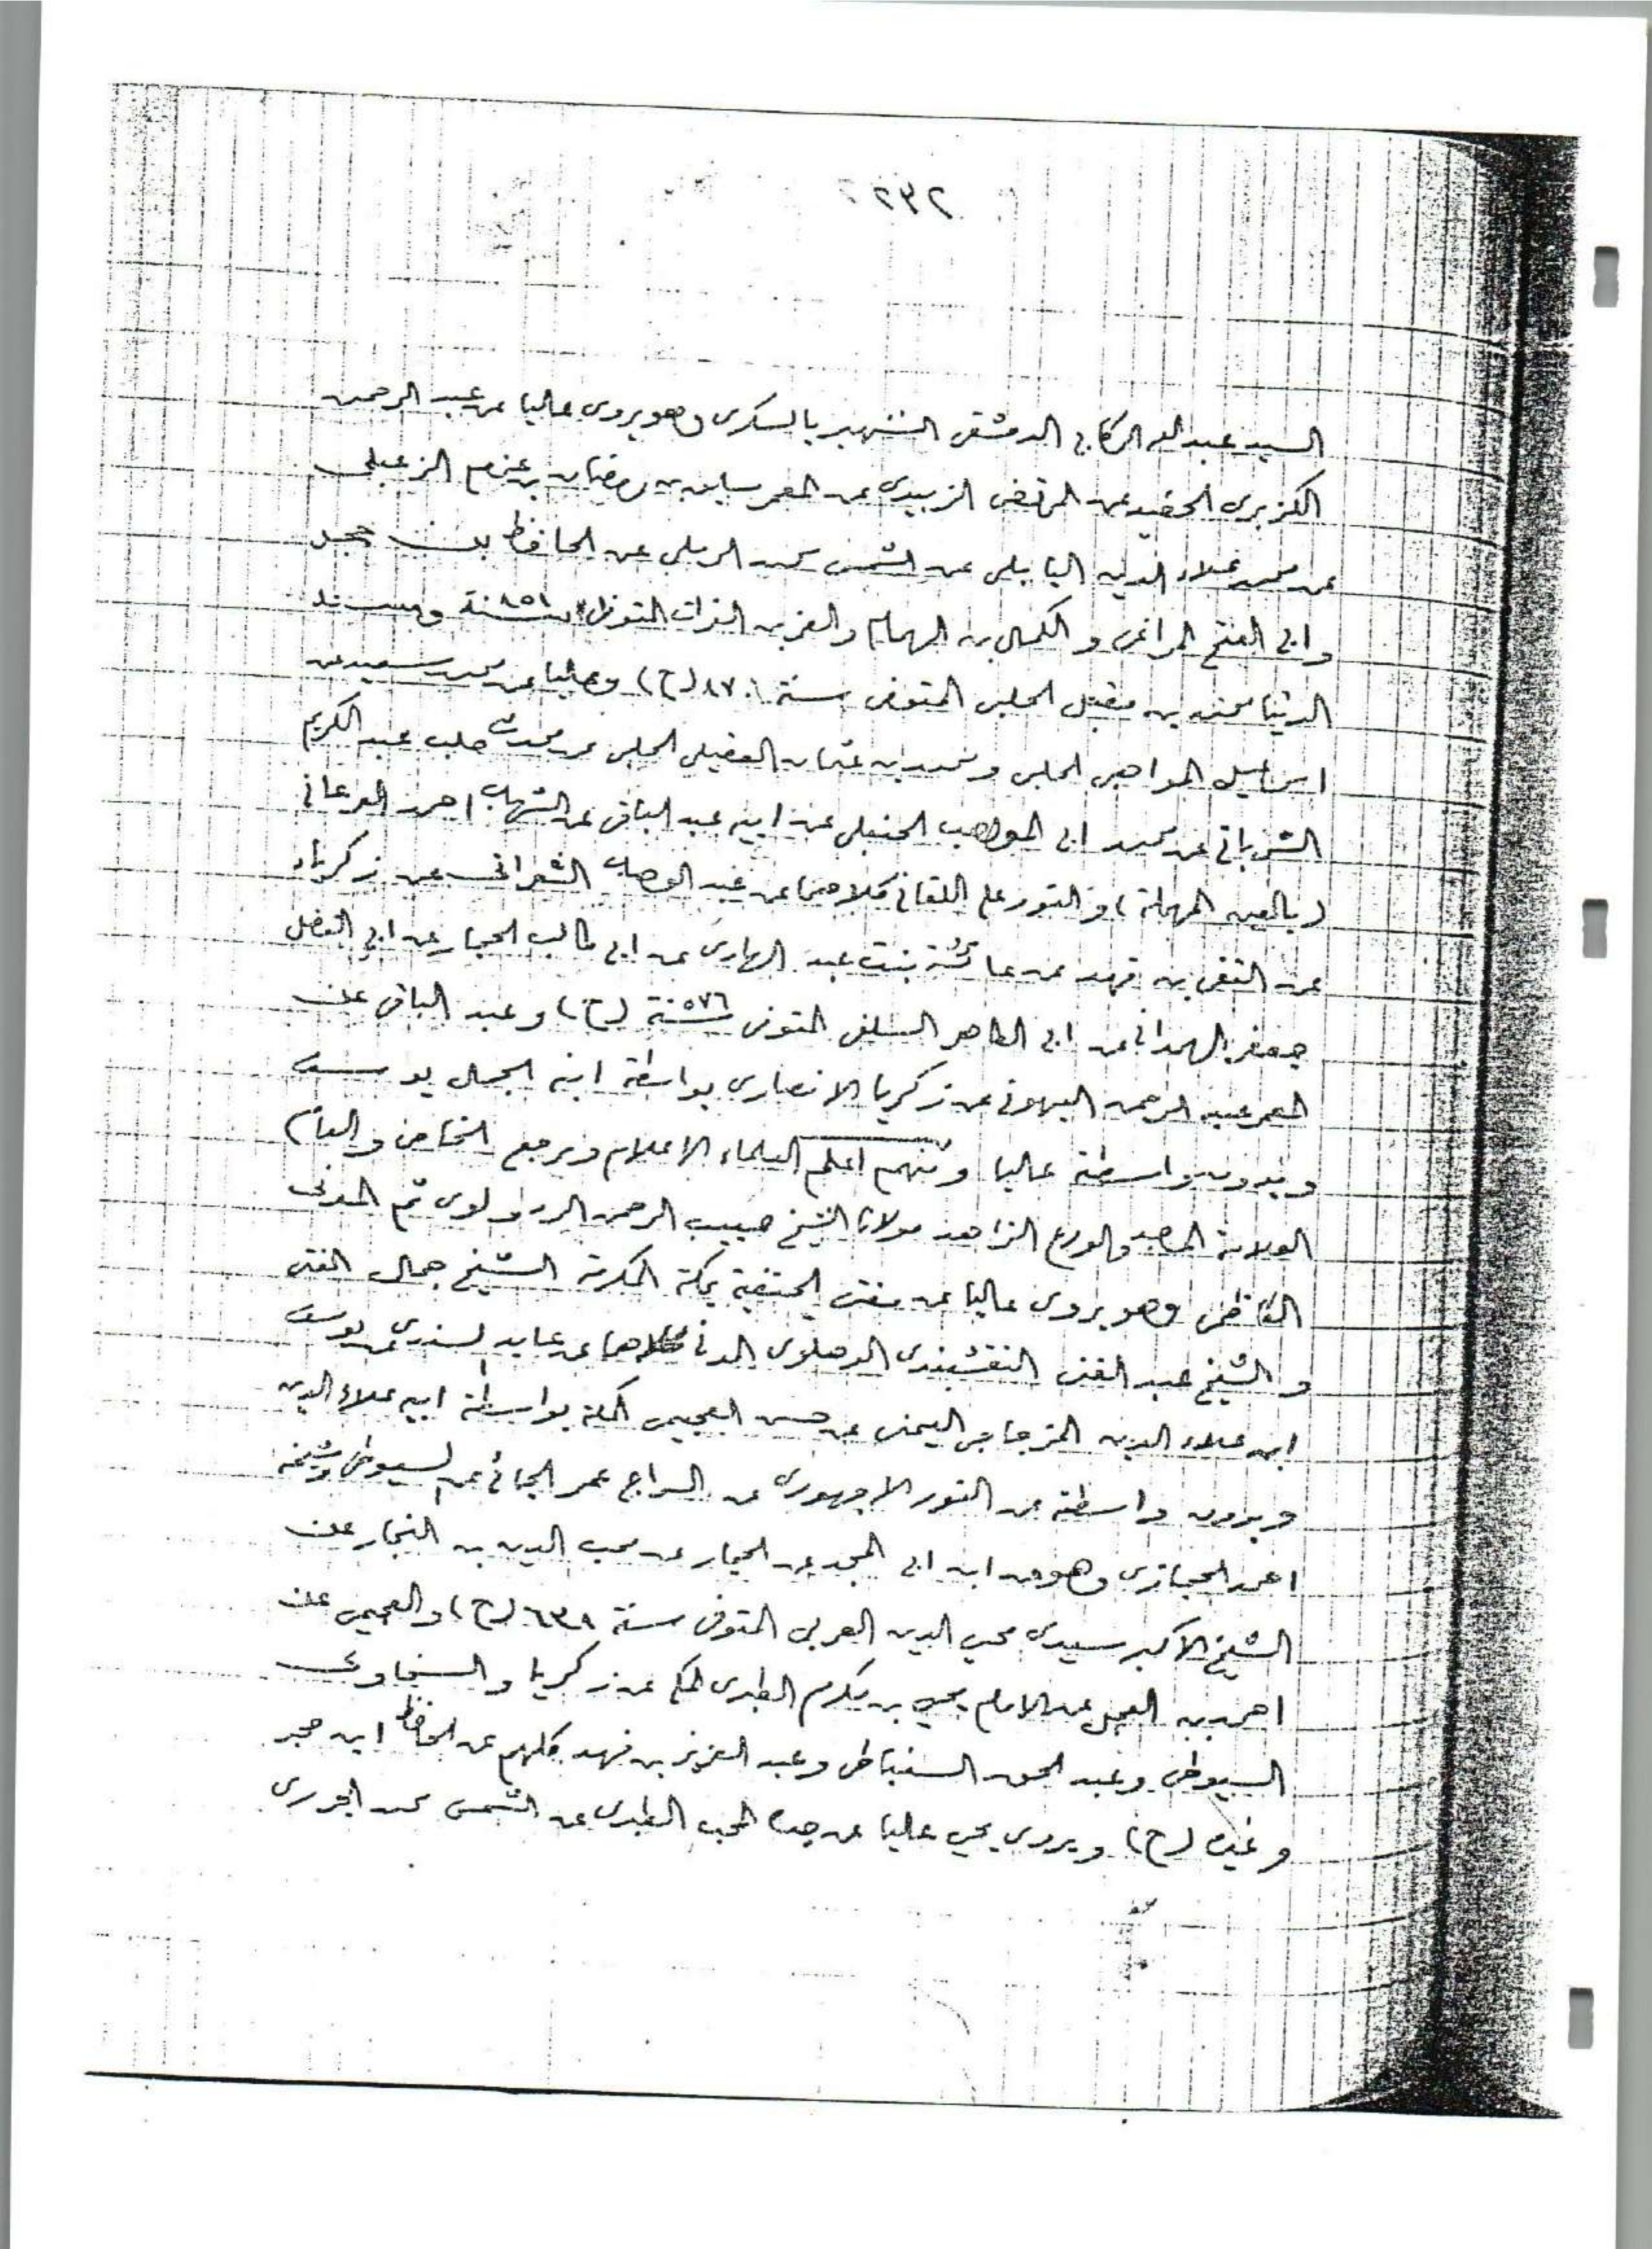 ٢٣٢
السيد عبد الله الركابي الدمشقي الشهير بالسكري وهو يروي عاليا عن عبد الرحمن
الكزبري الحفيد عن المرتضى الزبيدي عن المعمر سابق بن رمضان بن عزام الزعبلي
عن محمد علاء الدين البابلي عن الشمس محمد الرملي عن الحافظ بن حجر
وابي الفتح المراغي و الكمال بن الهمام والعز بن الفرات المتوفى سنة ٨٥١ ومسند
الدنيا محمد بن مقبل الحلبي المتوفى سنة ٨٧٠ (ح) وعاليا عن محمد سعيد عن
اسماعيل المواهبي الحلبي ومحمد بن عثمان العقيلي الحلبي عن محدث حلب عبد الكريم
الشرباتي عن محمد ابي المواهب الحنبلي عن ابيه عبد الباقي عن الشهاب احمد العرعاني
(بالعين المهملة) والنور علي اللقاني كلاهما عن عبد الوهاب الشعراني عن زكريا
عن التقي بن فهد عن عائشة بنت عبد الهادي عن ابي طالب الحجار عن ابي الفضل
جعفر الهمداني عن ابي الطاهر السلفي المتوفى سنة ٥٧٦ (ح) وعبد الباقي عن
المعمر عبد الرحمن البهوتي عن زكريا الانصاري بواسطة ابنه الجمال يوسف
وبدون واسطة عاليا ومنهم اعلم العلماء الاعلام ومرجع الخاص والعام
العلامة والورع الزاهد مولانا الشيخ حبيب الرحمن الردولوي ثم المدني
الكاظمي وهو يروي عاليا عن مفتي الحنفية بمكة المكرمة الشيخ جمال الفتني
و الشيخ عبد الغني النقشبندي الدهلوي المدني كلاهما عن عابد السندي عن يوسف
ابن علاء الدين المزجاجي اليمني عن حسن العجيمي المكي بواسطة ابيه علاء الدين
وبدون واسطة عن النور الاجهوري عن السراج عمر الجائي عن السيوطي وشيخه
احمد الحجازي وهو عن ابن ابي المجد عن الحجار عن محب الدين بن النجار عن
الشيخ الاكبر سيدي محيي الدين العربي المتوفى سنة ٦٣٨ (ح) والعجيمي عن
احمد بن العجل عن الامام يحيى بن مكرم الطبري المكي عن زكريا والسخاوي
السيوطي وعبد الحق السنباطي وعبد العزيز بن فهد كلهم عن الحافظ ابن حجر
وغيره (ح) ويروي يحيى عاليا عن جده المحب الطبري عن الشمس محمد الجزري